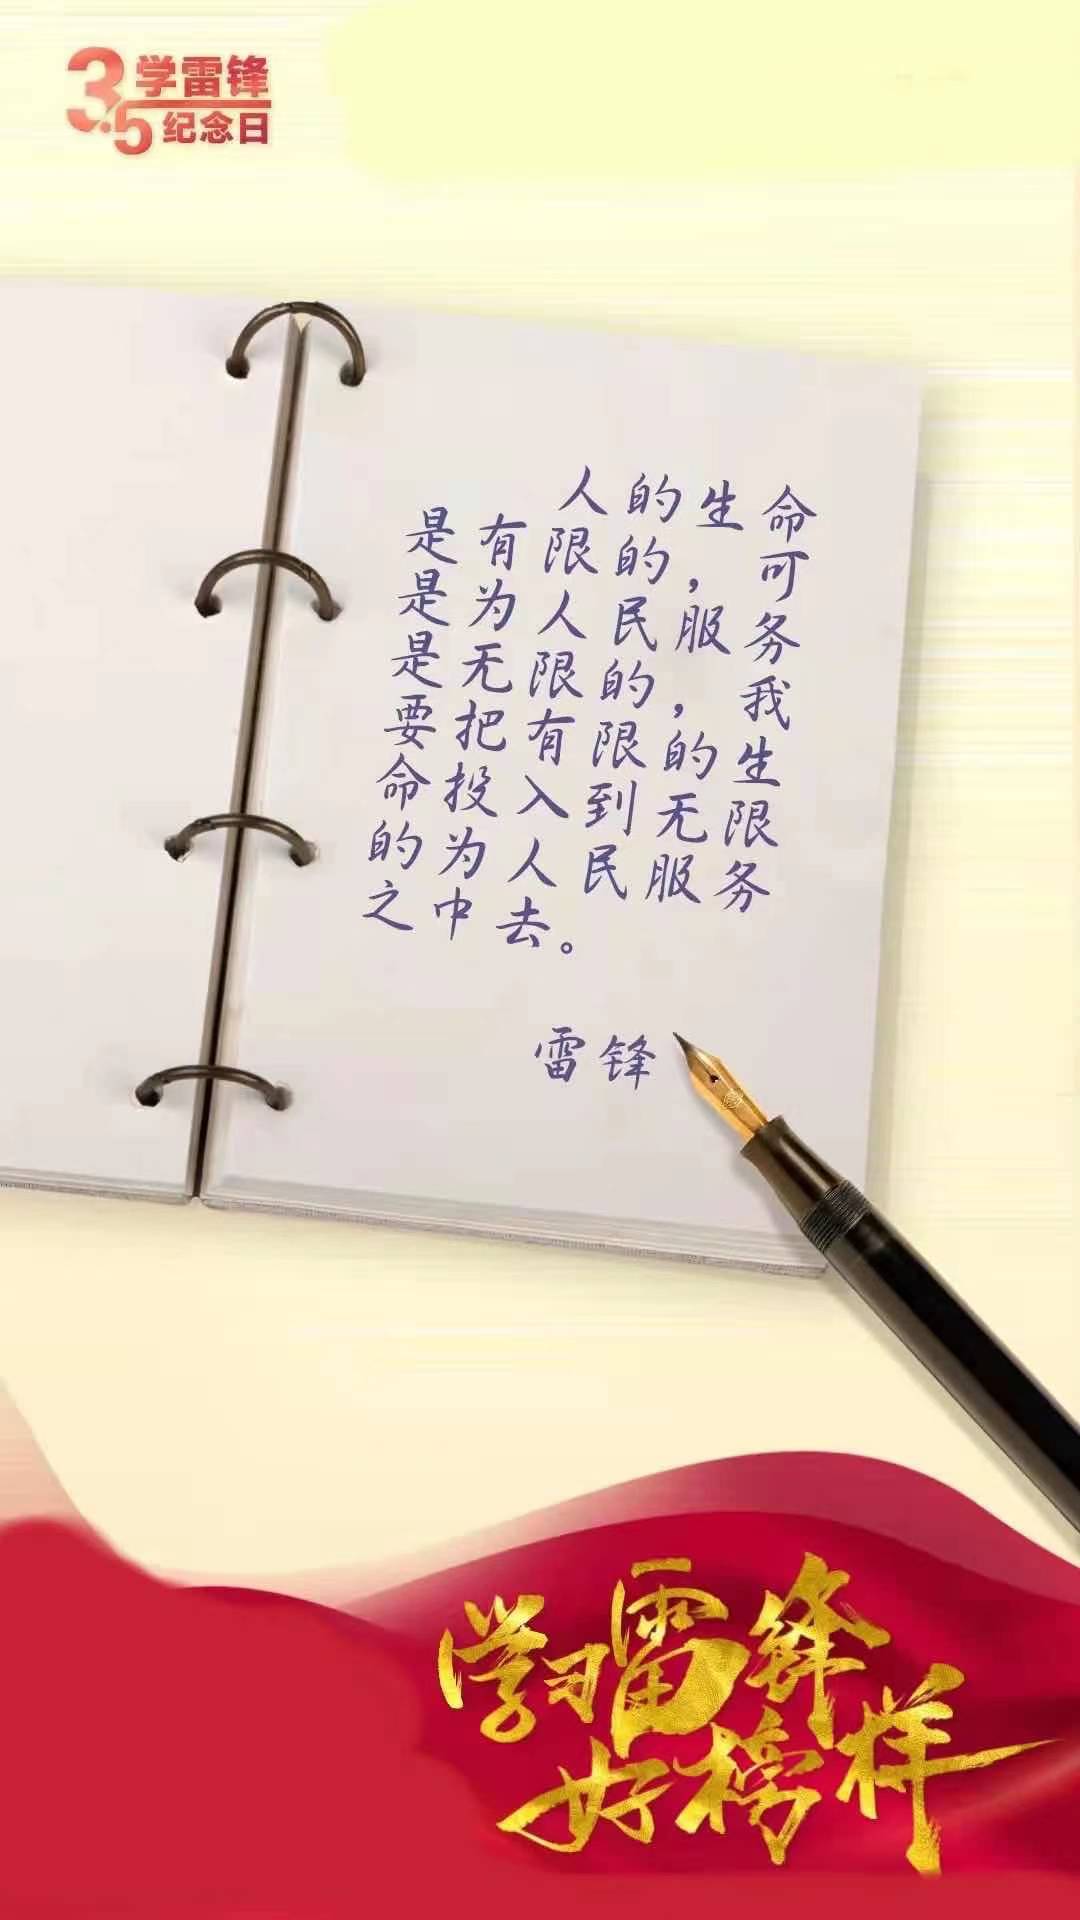 3.5学雷锋
纪念日
人的生命
是有限的，可
是为人民服务
是无限的，我
要把有限的生
命投入到无限
的为人民服务
之中去。
雷锋
学习雷锋
好榜样